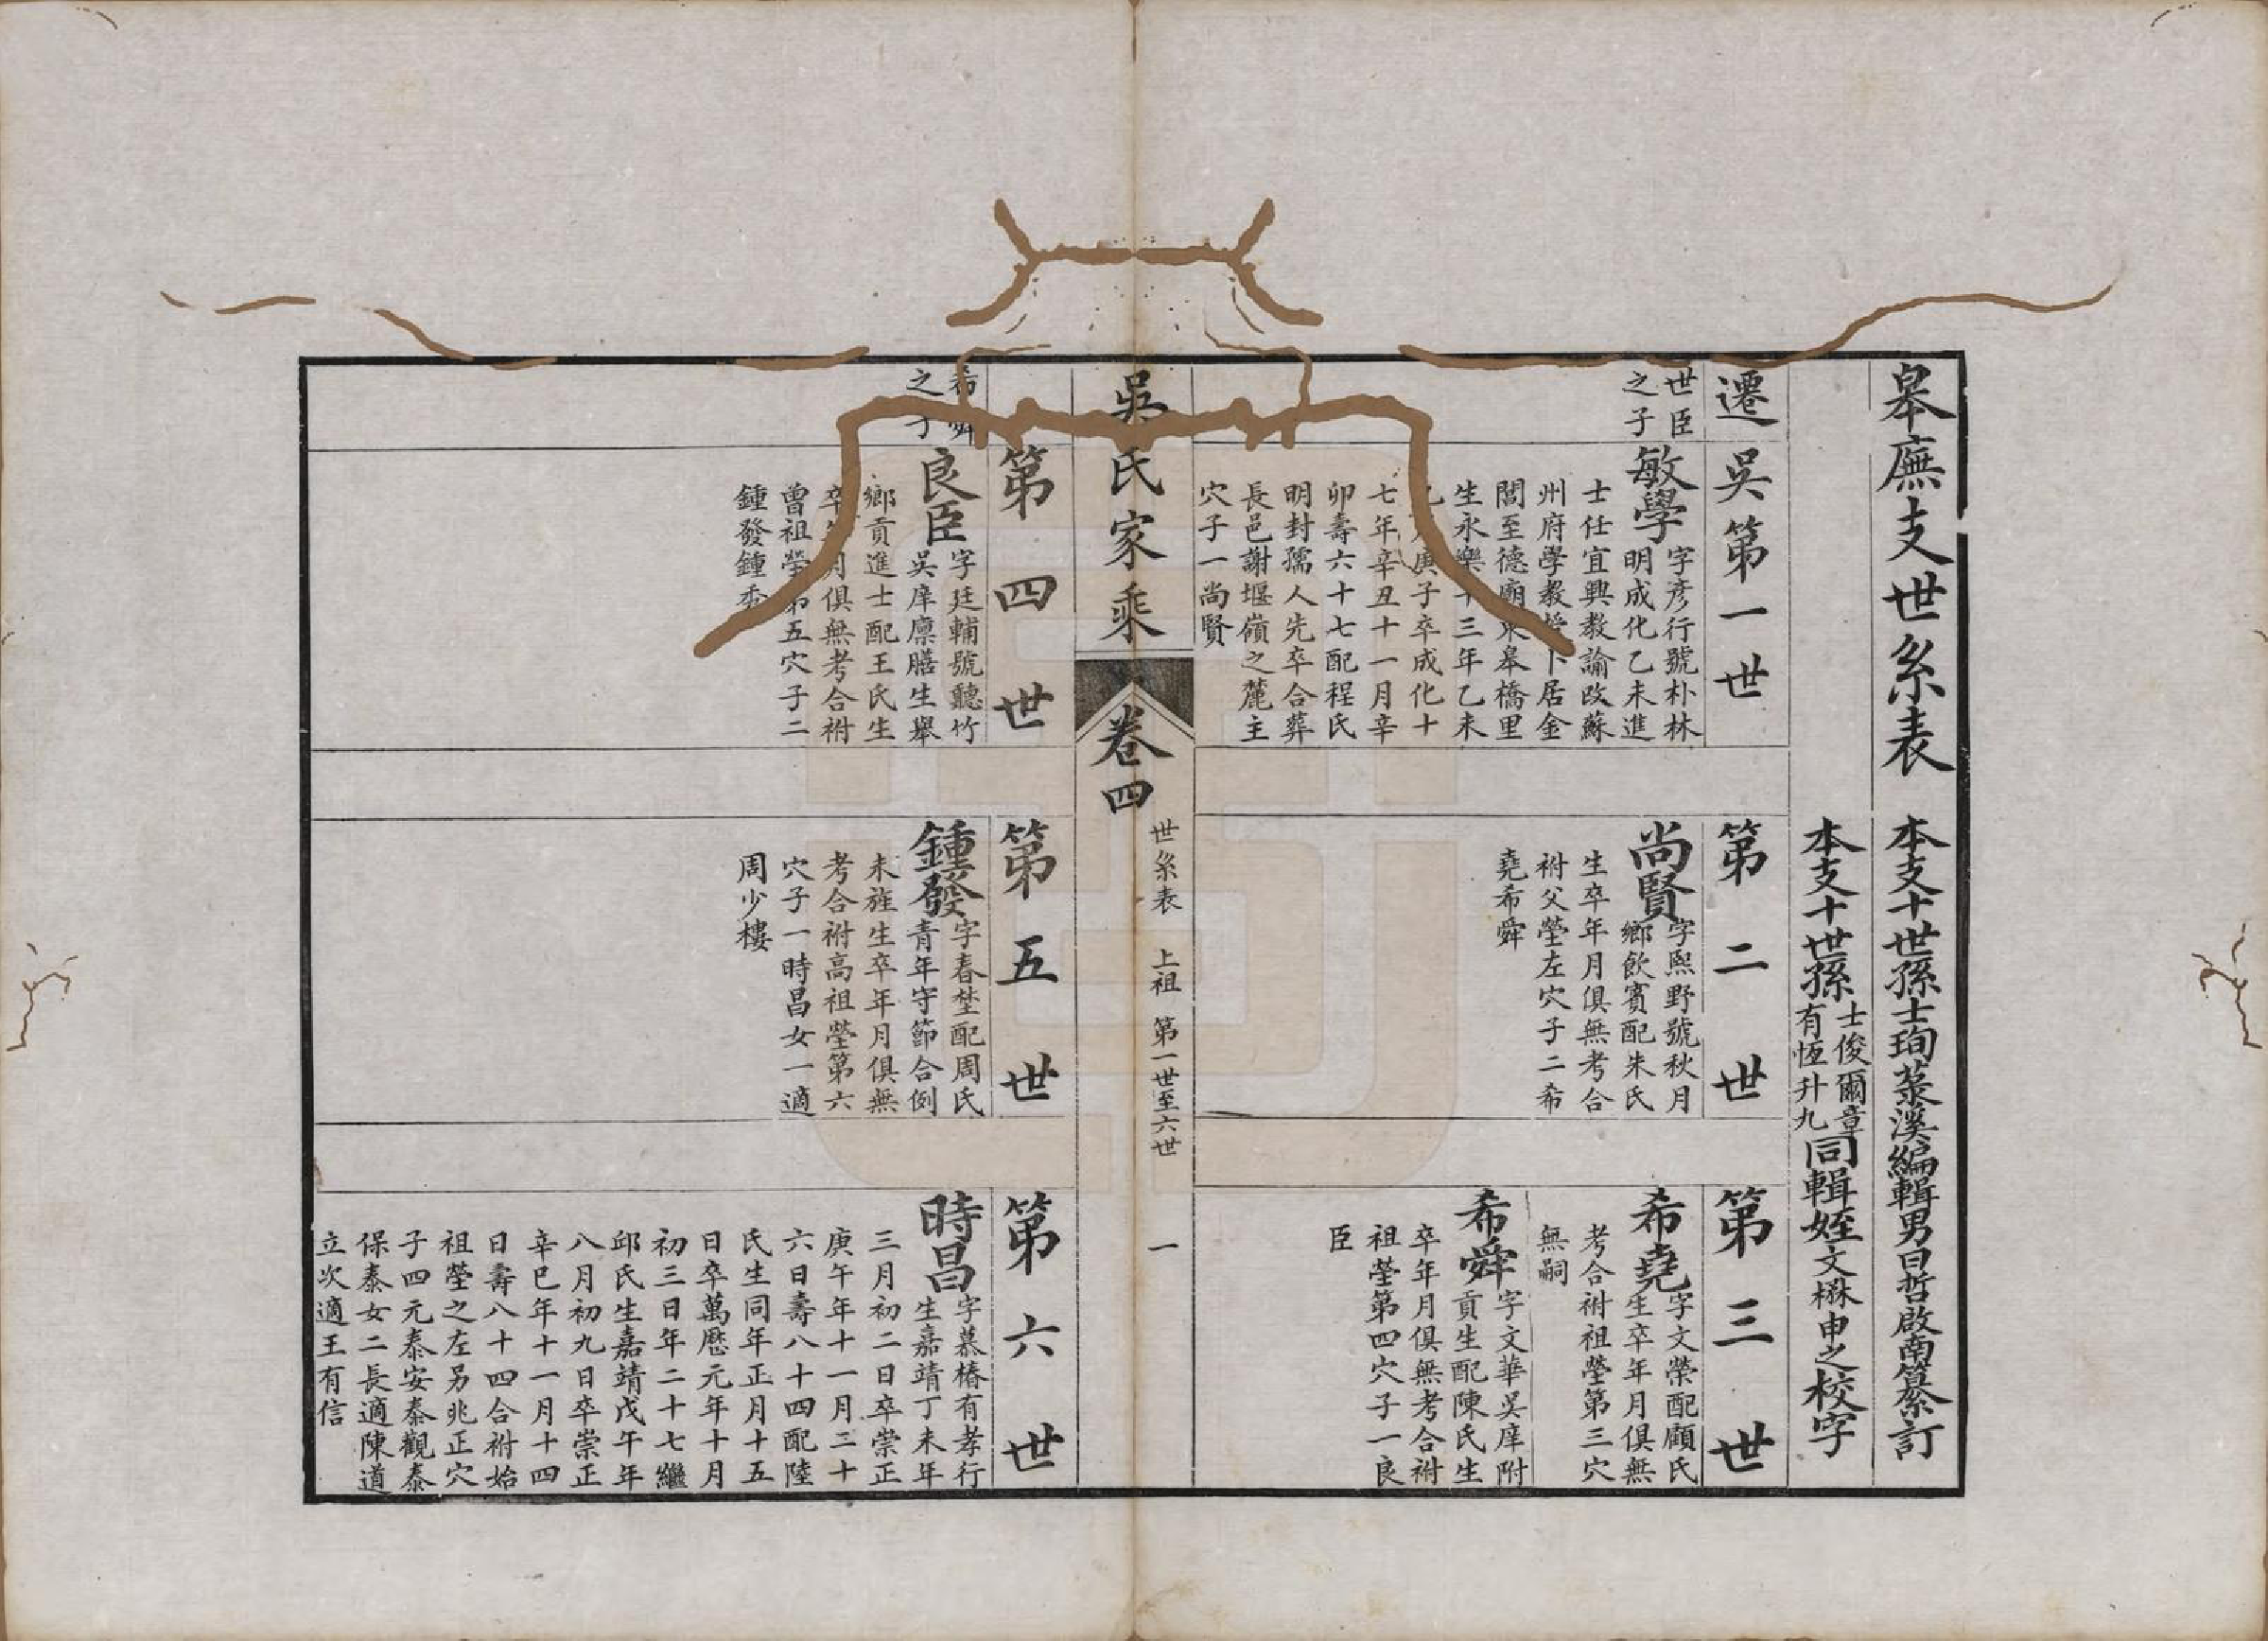 皋廡支世系表
本支十世孫士珣菉溪編輯男曰哲啟南纂訂
本支十世孫士俊爾章有恆升九同輯姪文楙申之校字
遷吳第一世
世臣之子
敏學
字彥行號朴林
明成化乙未進
士任宜興教諭改蘇
州府學教
卜居金
閶至德廟東皋橋里
生永樂十三年乙未
庚子卒成化十
七年辛丑十一月辛
卯壽六十七配程氏
明封孺人先卒合葬
長邑謝堰嶺之麓主
穴子一尚賢
第二世
尚賢
字熙野號秋月
鄉飲賓配朱氏
生卒年月俱無考合
祔父塋左穴子二希
堯希舜
第三世
希堯
字文榮配顧氏
生卒年月俱無
考合祔祖塋第三穴
無嗣
希舜
字文華吳庠附
貢生配陳氏生
卒年月俱無考合祔
祖塋第四穴子一良
臣
吳氏家乘
卷四
世系表 上祖 第一世至六世
一
第四世
希舜之子
良臣
字廷輔號聽竹
吳庠廩膳生舉
鄉貢進士配王氏生
卒年月俱無考合祔
曾祖塋第五穴子二
鍾發鍾秀
第五世
鍾發
字春埜配周氏
青年守節合例
未旌生卒年月俱無
考合祔高祖塋第六
穴子一時昌女一適
周少樓
第六世
時昌
字慕椿有孝行
生嘉靖丁未年
三月初二日卒崇正
庚午年十一月二十
六日壽八十四配陸
氏生同年正月十五
日卒萬厯元年十月
初三日年二十七繼
邱氏生嘉靖戊午年
八月初九日卒崇正
辛巳年十一月十四
日壽八十四合祔始
祖塋之左另兆正穴
子四元泰安泰觀泰
保泰女二長適陳道
立次適王有信